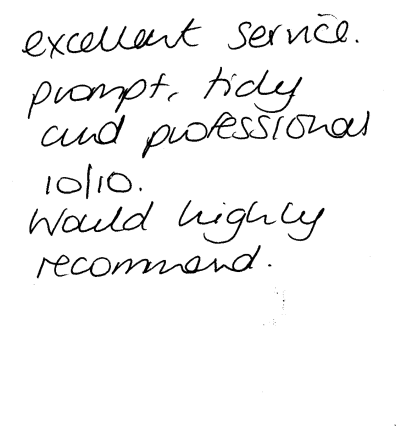 excellent service.
prompt, tidy
and professional
10/10.
Would highly
recommend.